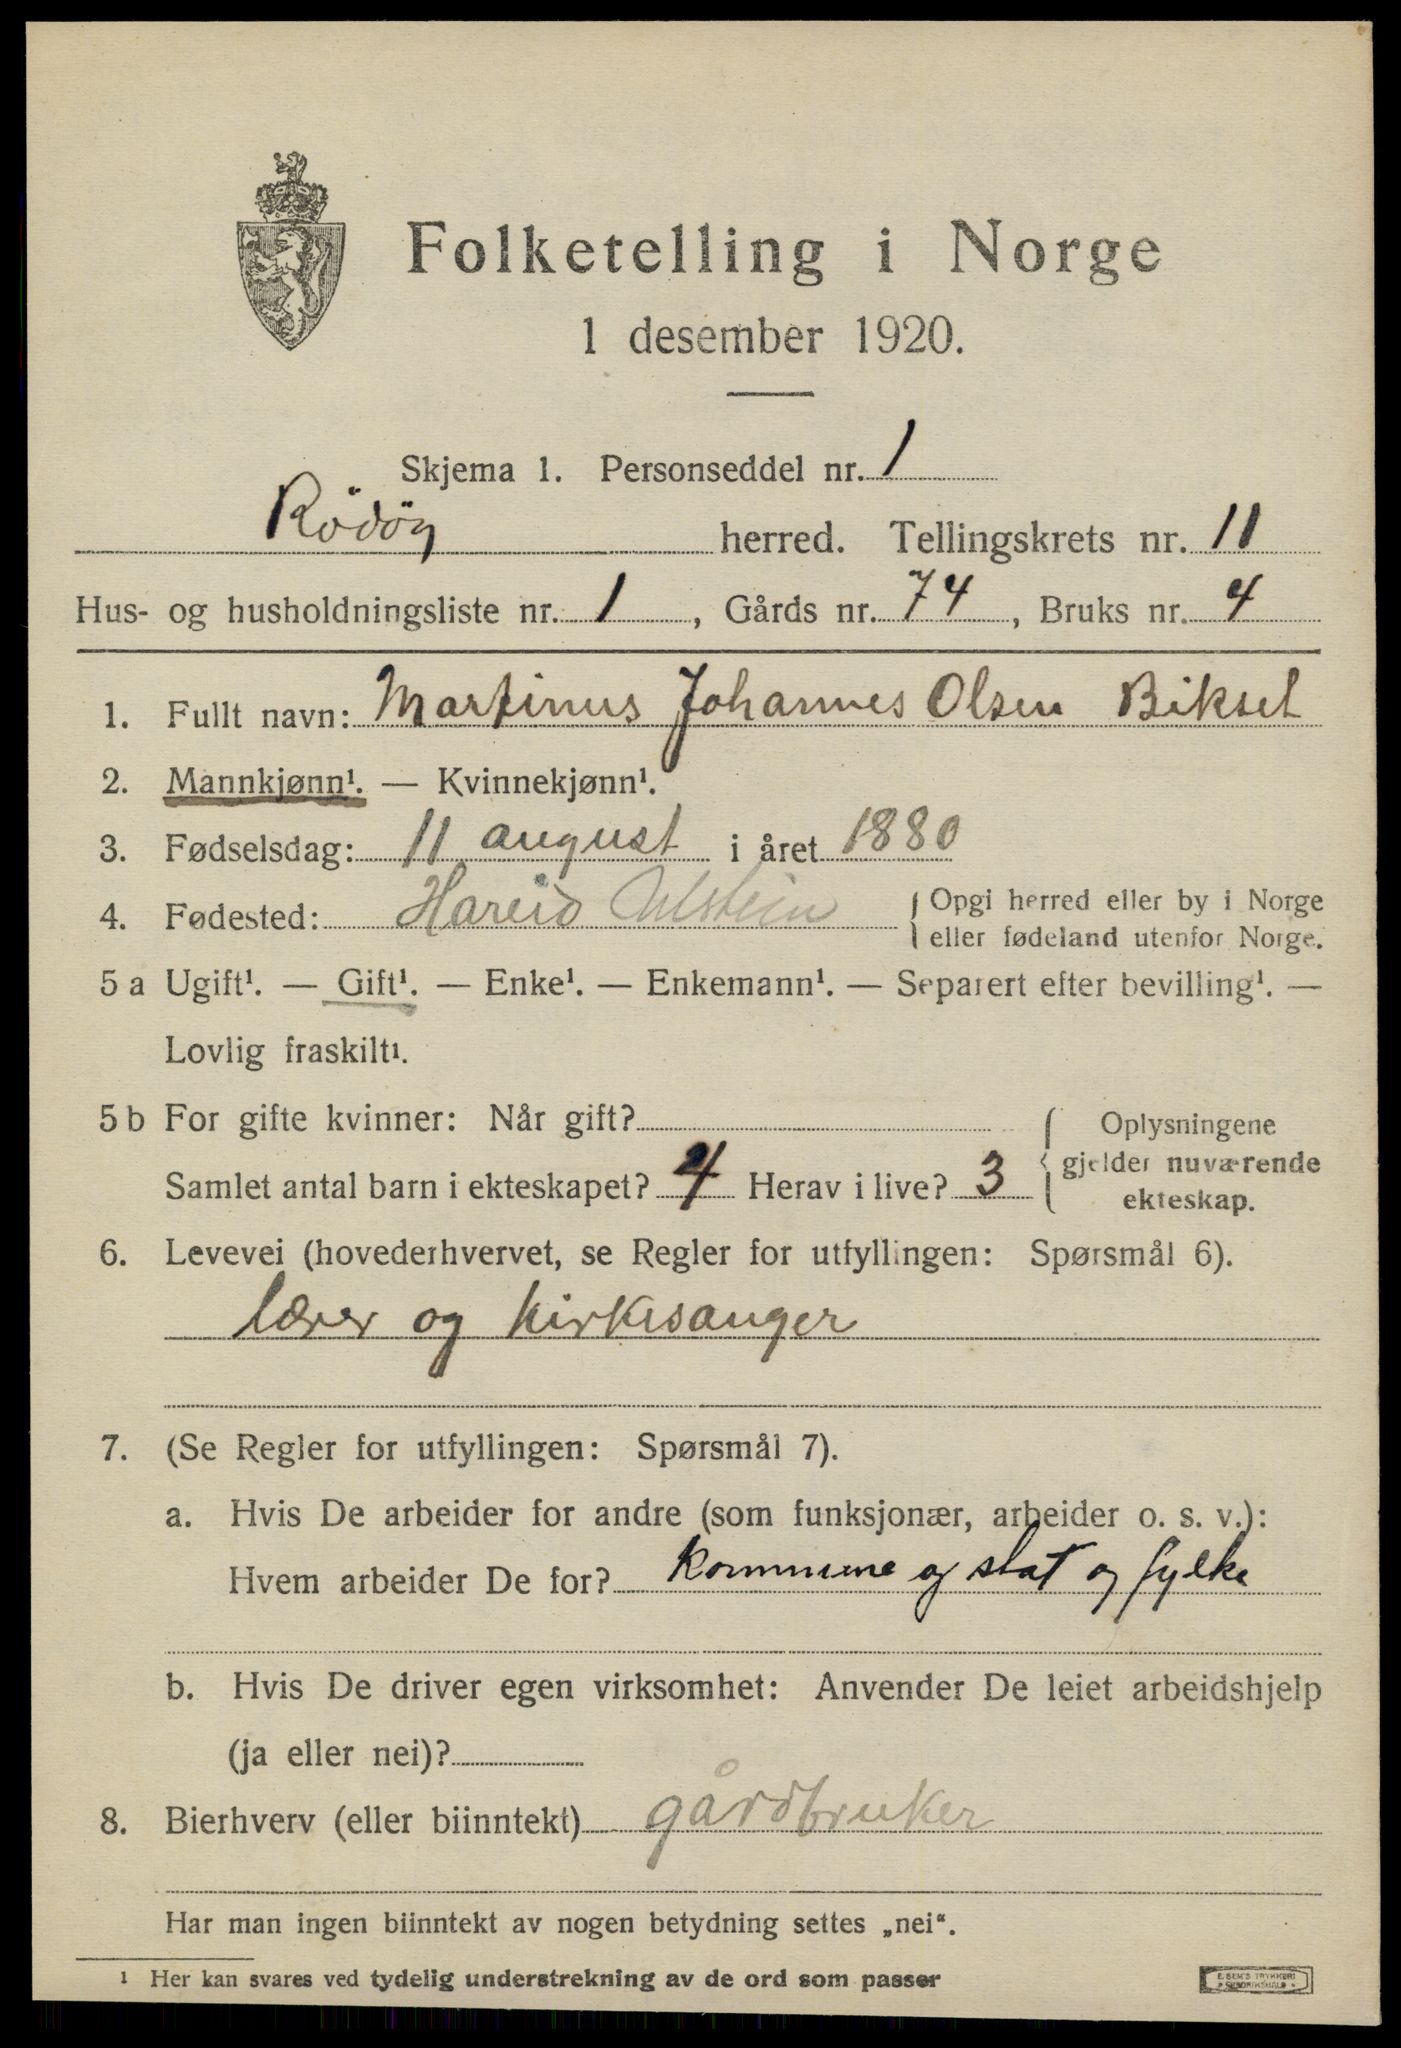 Folketelling i Norge
1 desember 1920.
Skjema 1. Personseddel nr. 1
Rödöy herred. Tellingskrets nr. 11
Hus- og husholdningsliste nr. 1, Gårds nr. 74, Bruks nr. 4
1. Fullt navn: Martinus Johannes Olsen Bikset
2. Mannkjønn¹. — Kvinnekjønn¹.
3. Fødselsdag: 11 august i året 1880
4. Fødested: Hareid Ulstein { Opgi herred eller by i Norge
eller fødeland utenfor Norge.
5 a Ugift¹. — Gift¹. — Enke¹. — Enkemann¹. — Separert efter bevilling¹. —
Lovlig fraskilt¹.
5 b For gifte kvinner: Når gift? { Oplysningene
gjelder nuværende
Samlet antal barn i ekteskapet? 4 Herav i live? 3
ekteskap.
6. Levevei (hovederhvervet, se Regler for utfyllingen: Spørsmål 6).
lærer og kirkesanger
7. (Se Regler for utfyllingen: Spørsmål 7).
a. Hvis De arbeider for andre (som funksjonær, arbeider o. s. v.):
Hvem arbeider De for? kommune og stat og fylke
b. Hvis De driver egen virksomhet: Anvender De leiet arbeidshjelp
(ja eller nei)?
8. Bierhverv (eller biinntekt) gårdbruker
Har man ingen biinntekt av nogen betydning settes „nei“.
¹ Her kan svares ved tydelig understrekning av de ord som passer
E. SEM'S TRYKKERI
FREDRIKSHALD